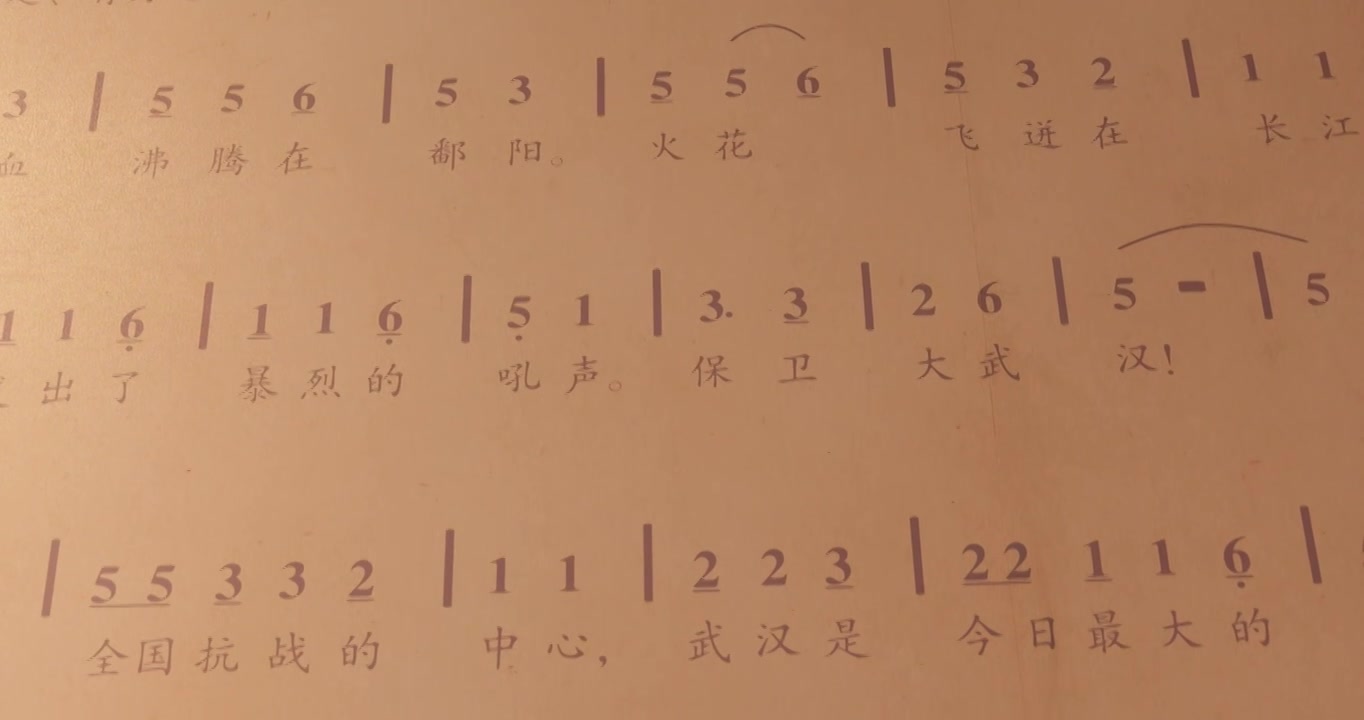 3 | 5 5 6 | 5 3 | 5 5 6 | 5 3 2 | 1 1
血 沸腾在 鄱阳。 火花 飞迸在 长江
1 1 6 | 1 1 6 | 5 1 | 3. 3 | 2 6 | 5 - | 5
出了 暴烈的 吼声。 保卫 大武 汉!
| 5 5 3 3 2 | 1 1 | 2 2 3 | 2 2 1 1 6 |
全国抗战的 中心, 武汉是 今日最大的